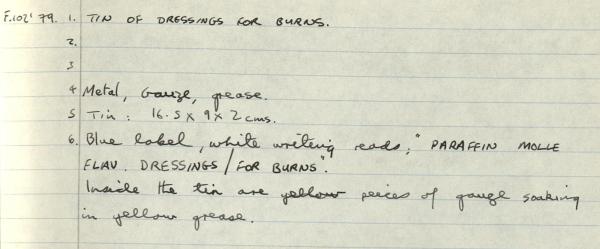 F.102' 79. 1. TIN OF DRESSINGS FOR BURNS.
2.
3
4 Metal, Gauze, grease.
5 Tin: 16.5 x 9 x 2 cms.
6. Blue label, white writing reads; "PARAFFIN MOLLE
FLAV. DRESSINGS / FOR BURNS".
Inside the tin are yellow peices of gauze soaking
in yellow grease.